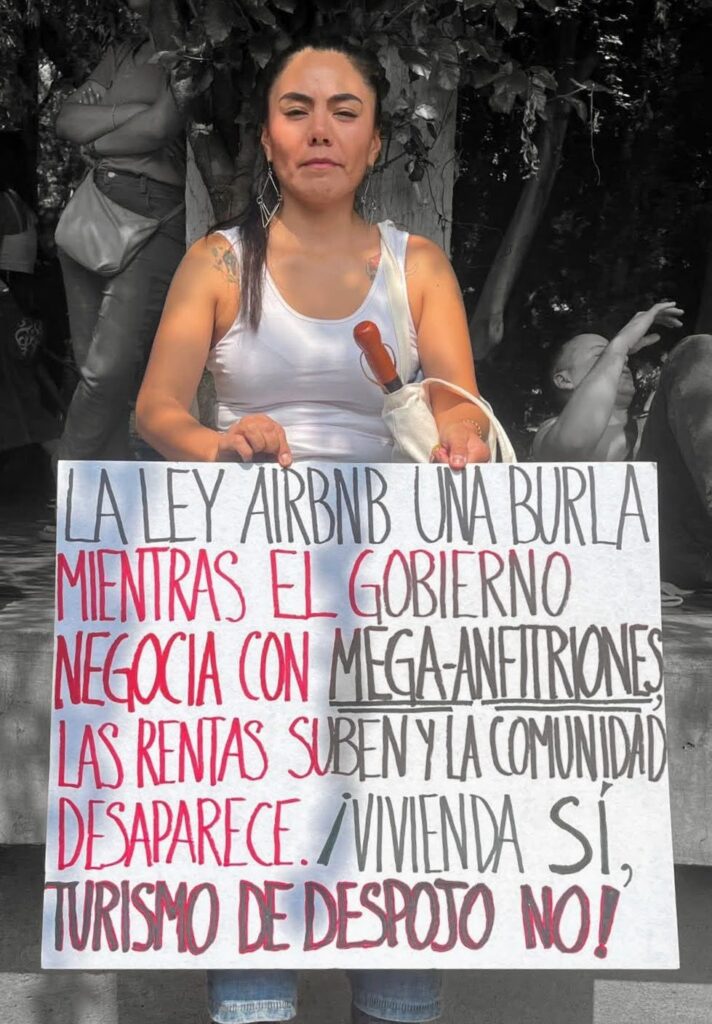 LA LEY AIRBNB UNA BURLA
MIENTRAS EL GOBIERNO
NEGOCIA CON MEGA-ANFITRIONES,
LAS RENTAS SUBEN Y LA COMUNIDAD
DESAPARECE. ¡VIVIENDA SÍ,
TURISMO DE DESPOJO NO!